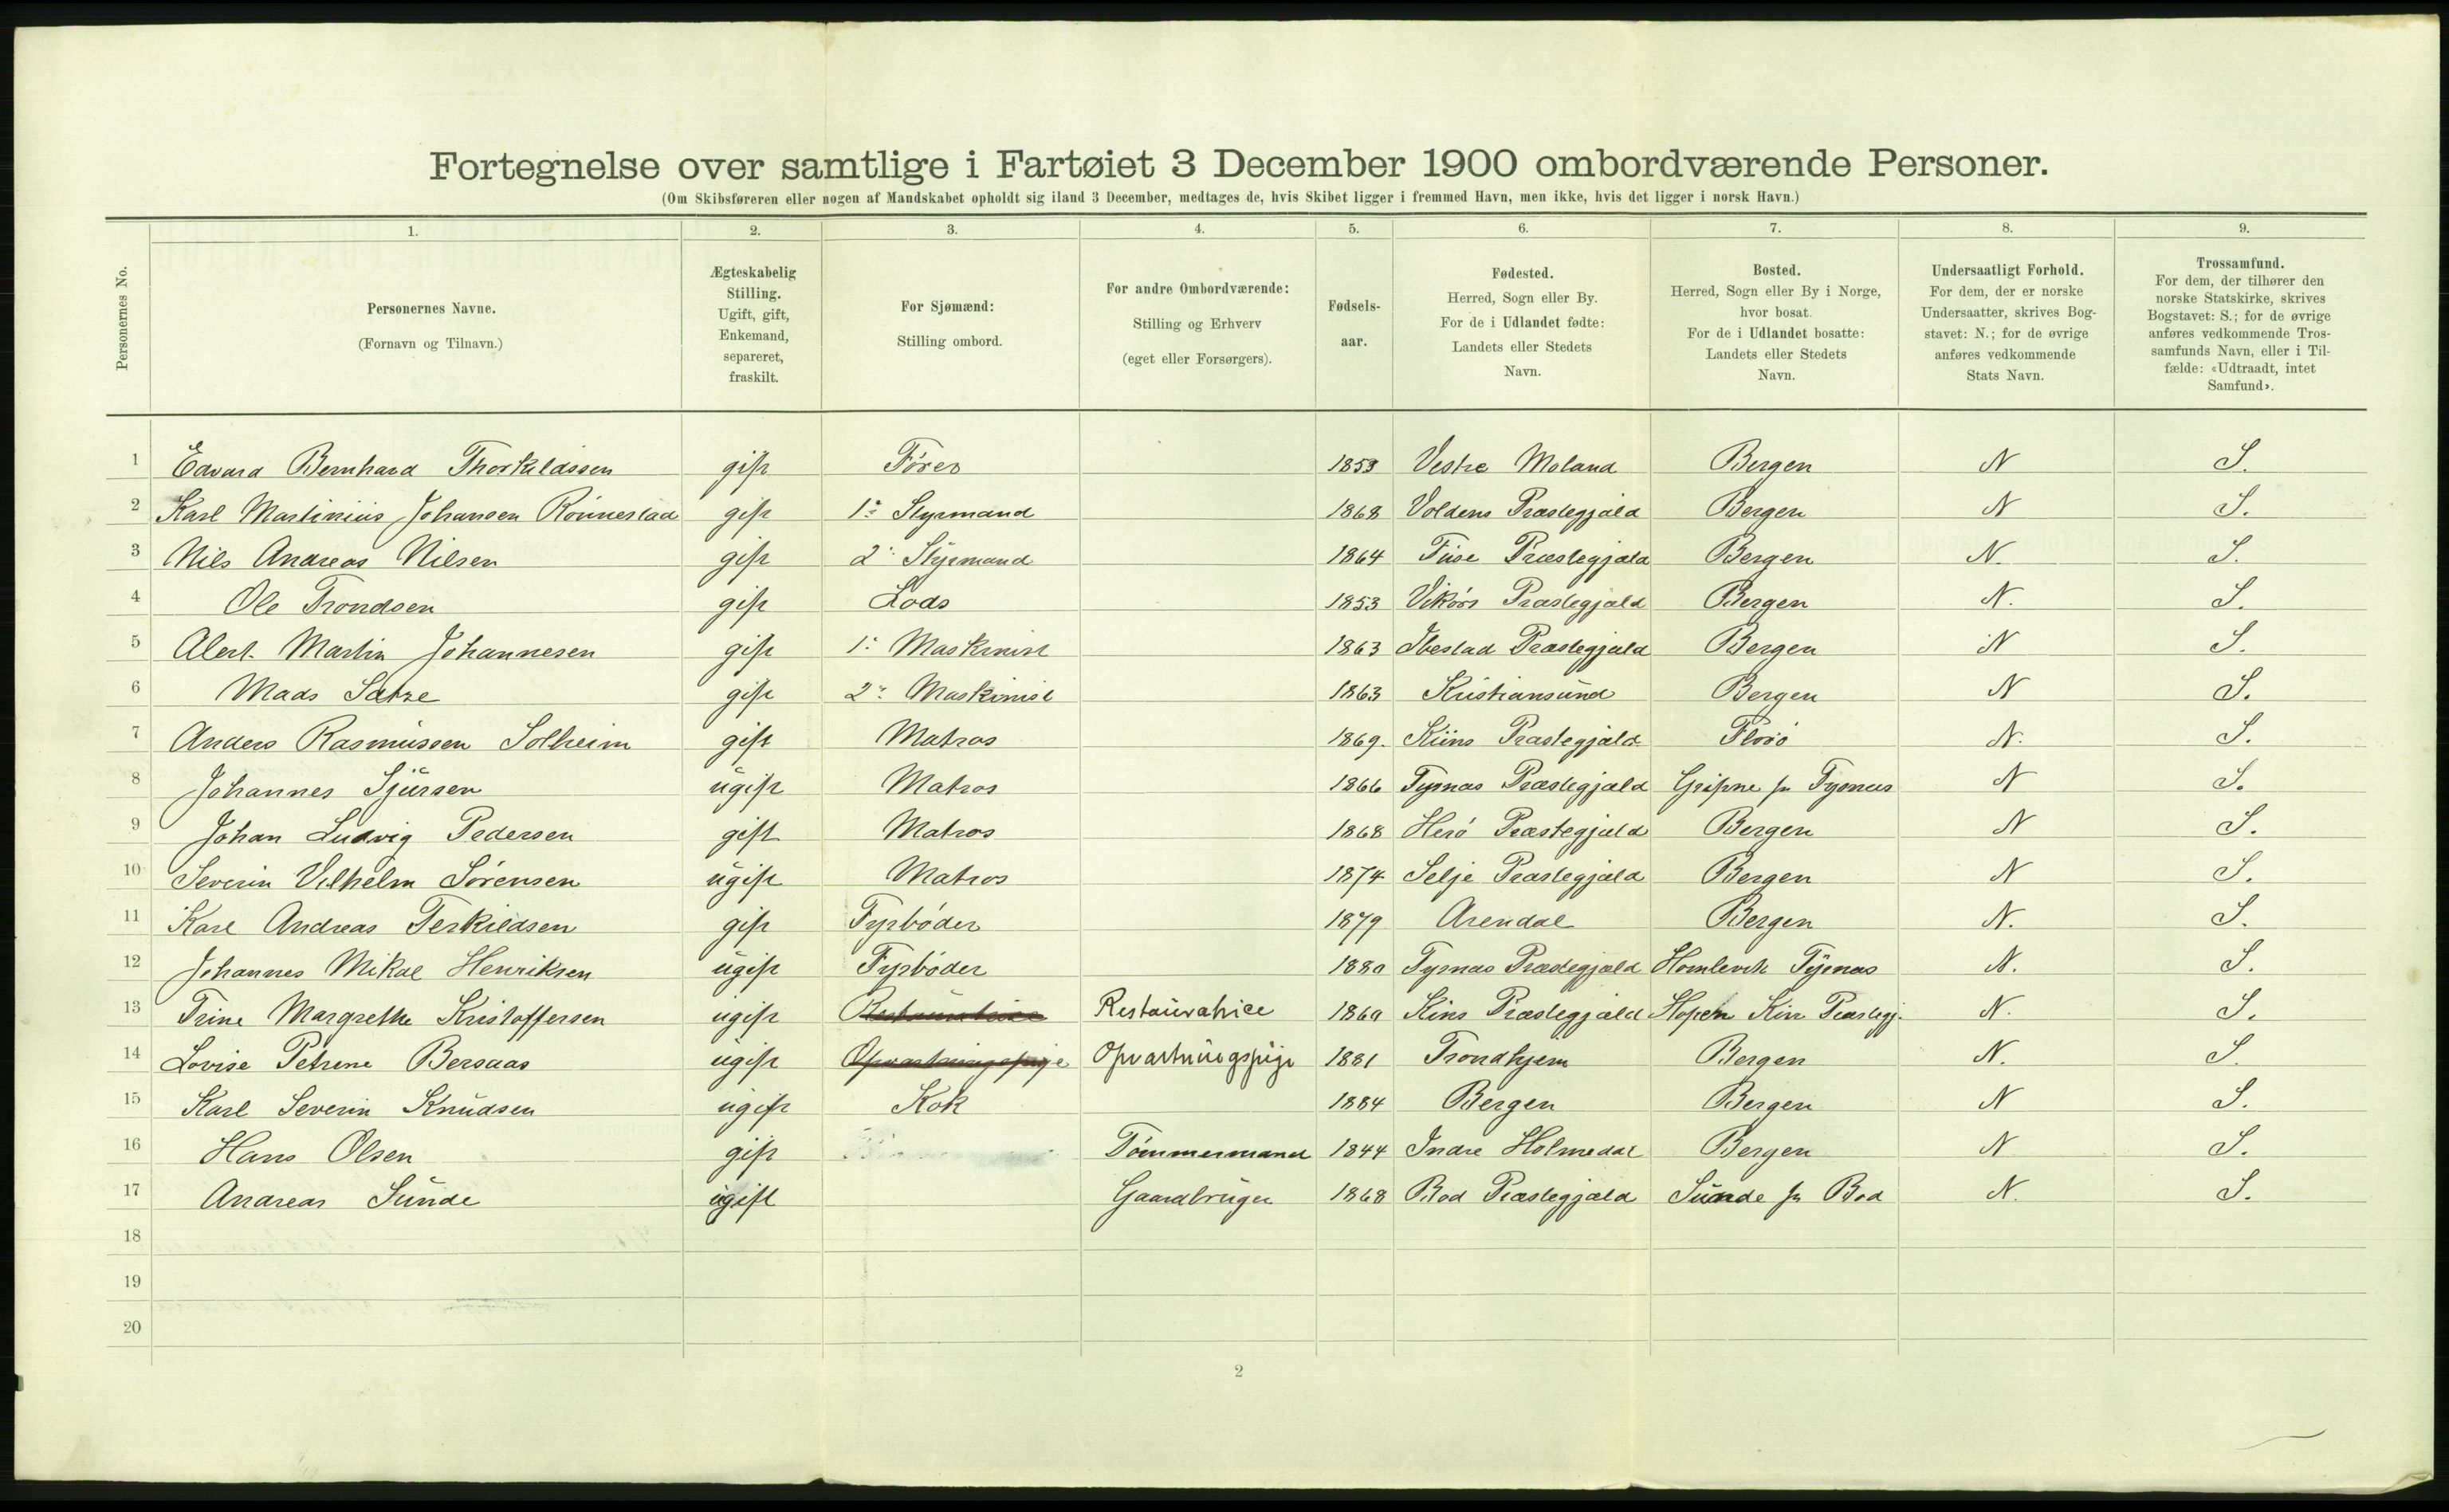 Fortegnelse over samtlige i Fartøiet 3 December 1900 ombordværende Personer.
(Om Skibsføreren eller nogen af Mandskabet opholdt sig iland 3 December, medtages de, hvis Skibet ligger i fremmed Havn, men ikke, hvis det ligger i norsk Havn.)
1. 2. 3. 4. 5. 6. 7. 8. 9.
Personernes No.
Personernes Navne.
(Fornavn og Tilnavn.)
Ægteskabelig
Stilling.
Ugift, gift,
Enkemand,
separeret,
fraskilt.
For Sjømænd:
Stilling ombord.
For andre Ombordværende:
Stilling og Erhverv
(eget eller Forsørgers).
Fødsels-
aar.
Fødested.
Herred, Sogn eller By.
For de i Udlandet fødte:
Landets eller Stedets
Navn.
Bosted.
Herred, Sogn eller By i Norge,
hvor bosat.
For de i Udlandet bosatte:
Landets eller Stedets
Navn.
Undersaatligt Forhold.
For dem, der er norske
Undersaatter, skrives Bog-
stavet: N.; for de øvrige
anføres vedkommende
Stats Navn.
Trossamfund.
For dem, der tilhører den
norske Statskirke, skrives
Bogstavet: S.; for de øvrige
anføres vedkommende Tros-
samfunds Navn, eller i Til-
fælde: «Udtraadt, intet
Samfund».
1 Edvard Bernhard Thorkildssen gift Fører 1853 Vestre Moland Bergen N S.
2 Karl Martinius Johansen Rönnestad gift 1ste Styrmand 1868 Voldens Præstegjæld Bergen N S.
3 Nils Andreas Nilsen gift 2: Styrmand 1864 Fuse Præstegjæld Bergen N. S.
4 Ole Trondsen gift Lods 1853 Vikörs Præstegjæld Bergen N. S.
5 Alert Martin Johannesen gift 1: Maskinist 1863 Ibestad Præstegjæld Bergen N S.
6 Mads Sætre gift 2: Maskinist 1863 Kristiansund Bergen N S.
7 Anders Rasmussen Solheim gift Matros 1869. Kiins Præstegjæld Florö N. S.
8 Johannes Sjursen ugift Matros 1866 Tysnæs Præstegjæld Gripne pr Tysnæs N S.
9 Johan Ludvig Pedersen gift Matros 1868 Herö Præstegjæld Bergen N S.
10 Severin Vilhelm Sörensen ugift Matros 1874 Selje Præstegjæld Bergen N S.
11 Karl Andreas Terkildsen gift Fyrböder 1879 Arendal Bergen N. S.
12 Johannes Mikal Henriksen ugift Fyrböder 1880 Tysnæs Præstegjæld Tysnæs N. S.
13 Trine Margrethe Kristoffersen ugift Restauratrice Restauratrice 1860 Kins Præstegjæld Hopen Kin Præstegj. N. S.
14 Lovise Petrine Bersaas ugift Opvartningspige Opvartningspige 1881 Trondhjem Bergen N. S.
15 Karl Severin Knudsen ugift Kok 1884 Bergen Bergen N S.
16 Hans Olsen gift Tömmermand 1844 Indre Holmedal Bergen N S.
17 Andreas Sunde ugift Gaardbruger 1868 Bod Præstegjæld Sunde pr Bod N. S.
18
19
20
2